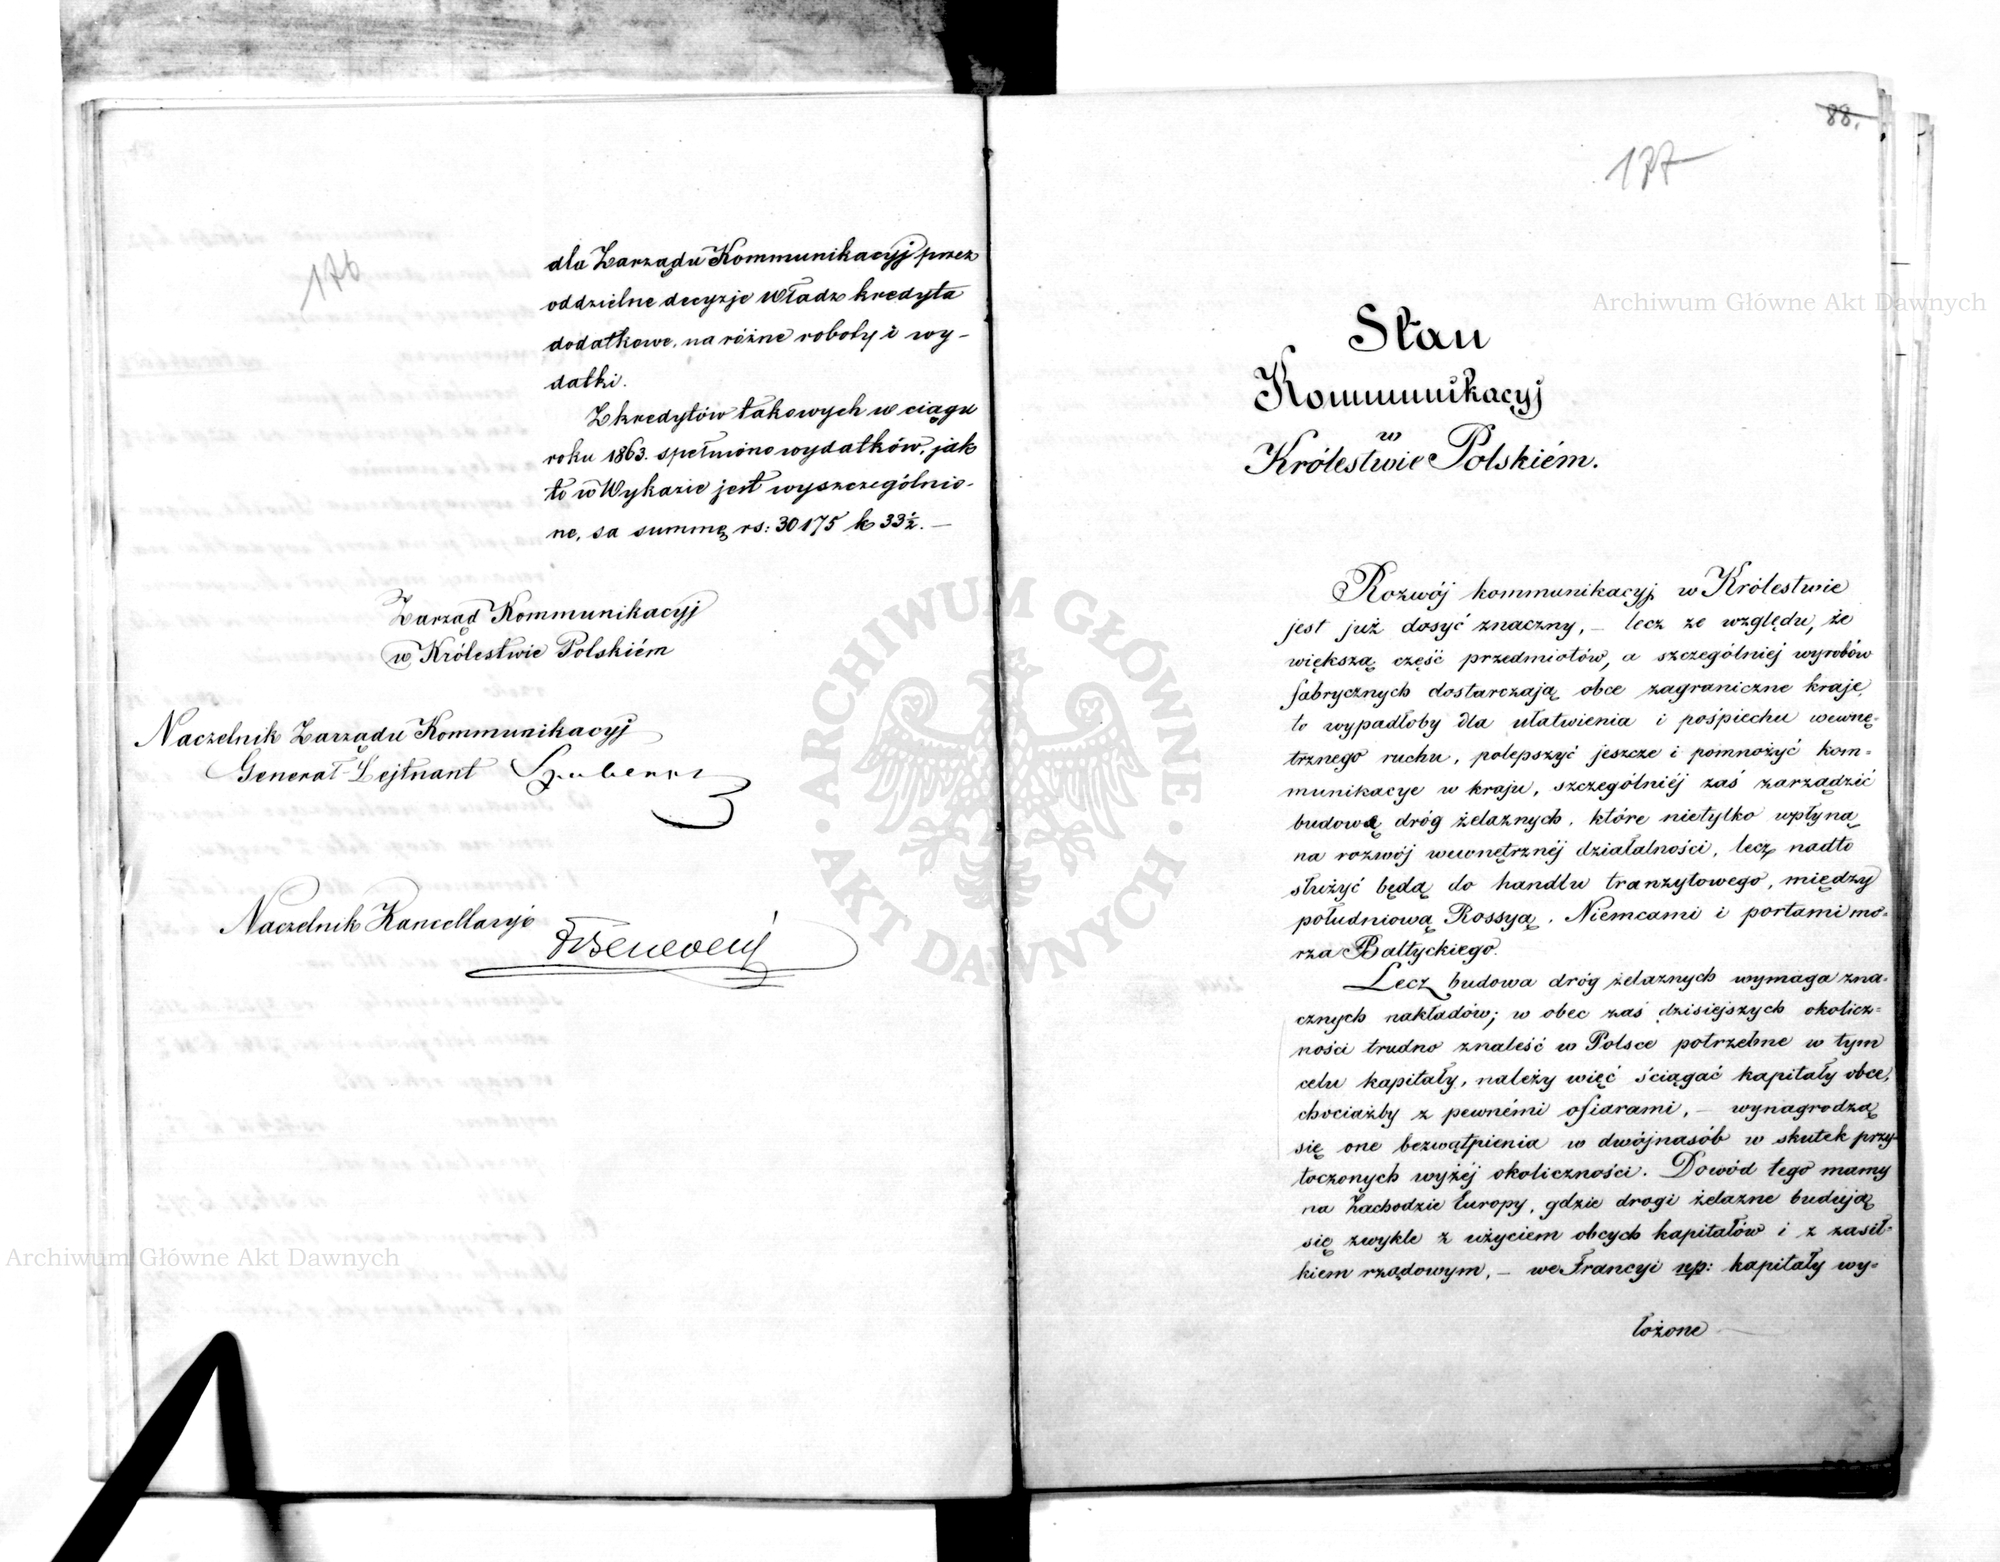 176
dla Zarządu Kommunikacyj przez
oddzielne decyzje Władz kredyta
dodatkowe, na różne roboty i wy-
datki.
Z kredytów takowych w ciągu
roku 1863. spełniono wydatków, jak
to w Wykazie jest wyszczególnio-
ne, sa summę rs: 30175 k 33½. —
Zarząd Kommunikacyj
w Królestwie Polskiém
Naczelnik Zarządu Kommunikacyj
Generał-Lejtnant
Naczelnik Kancellaryi
88.
177
Stan
Kommunikacyj
w
Królestwie Polskiém.
Rozwój kommunikacyj w Królestwie
jest już dosyć znaczny, — lecz ze względu, że
większą część przedmiotów, a szczególniej wyrobów
fabrycznych dostarczają obce zagraniczne kraje,
to wypadłoby dla ułatwienia i pośpiechu wewnę=
trznego ruchu, polepszyć jeszcze i pomnożyć kom=
munikacye w kraju, szczególniéj zaś zarządzić
budowę dróg żelaznych, które nietylko wpłyną
na rozwój wewnętrznéj działalności, lecz nadto
służyć będą do handlu tranzytowego, między
południową Rossyą, Niemcami i portami mo=
rza Bałtyckiego.
Lecz budowa dróg żelaznych wymaga zna=
cznych nakładów; w obec zaś dzisiejszych okolicz=
ności trudno znaleść w Polsce potrzebne w tym
celu kapitały, należy więć ściągać kapitały obce,
chociażby z pewnémi ofiarami, — wynagrodzą
się one bezwątpienia w dwójnasób w skutek przy=
toczonych wyżéj okoliczności. Dowód tego mamy
na Zachodzie Europy, gdzie drogi żelazne budują
się zwykle z użyciem obcych kapitałów i z zasił=
kiem rządowym, — we Francyi np: kapitały wy=
łożone
Archiwum Główne Akt Dawnych
ARCHIWUM GŁÓWNE
AKT DAWNYCH
Archiwum Główne Akt Dawnych